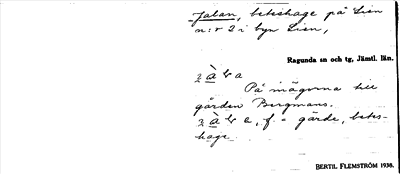 -Jalan, beteshage på Lien
n:r 2 i byn Lien,
Ragunda sn och tg, Jämtl. län.
På inägorna till
gården Bergmans.
f. = gärde, betes-
hage.
BERTIL FLEMSTRÖM 1936.